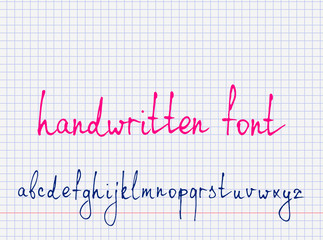 handwritten font
abcdefghijklmnopqrstuvwxyz